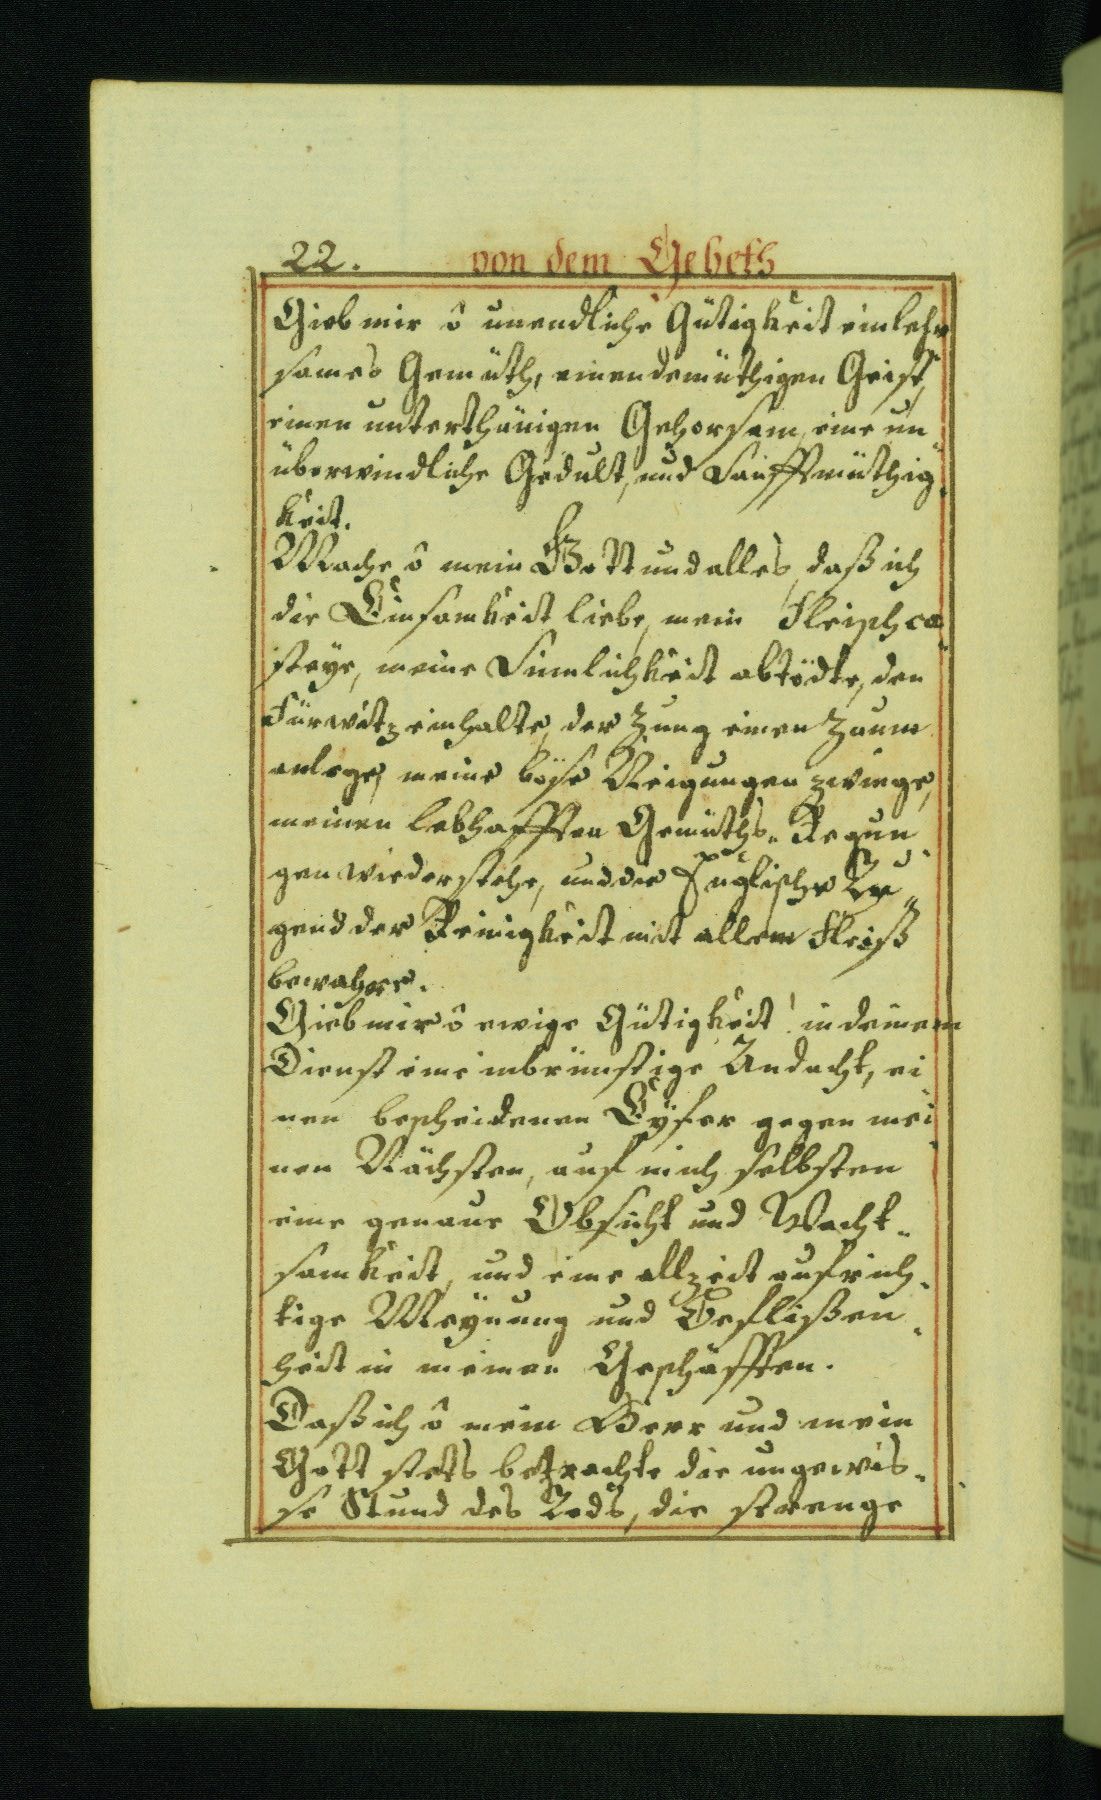 22. von dem Gebeth
Gieb mir ô unendliche Gütigkeit ein lehr
sames Gemüth, einen demüthigen Geist,
einen unterthänigen Gehorsam, eine un„
überwindliche Gedult, und Sanfftmüthig„
keit.
Mache ô mein Gott und alles, daß ich
die Einsamkeit liebe, mein Fleisch ca„
steye, meine Sinnlichkeit abtödte, den
Fürwitz einhalte, der Zung einen Zaum
anlege, meine böse Neigungen zwinge,
meinen lebhafften Gemüths„Regun„
gen wiederstehe, und die Englische Tu„
gend der Reinigkeit mit allem Fleiß
bewahre.
Gieb mir ô ewige Gütigkeit! in deinem
Dienst eine inbrünstige Andacht, ei
nen bescheidenen Eyfer gegen mei„
nen Nächsten, auf mich selbsten
eine genaue Obsicht und Wacht„
samkeit, und eine allzeit aufrich„
tige Meynung und Beflißen„
heit in meinen Geschäfften.
Daß ich ô mein Herr und mein
Gott stets betrachte die ungewis„
se Stund des Tods, die strenge